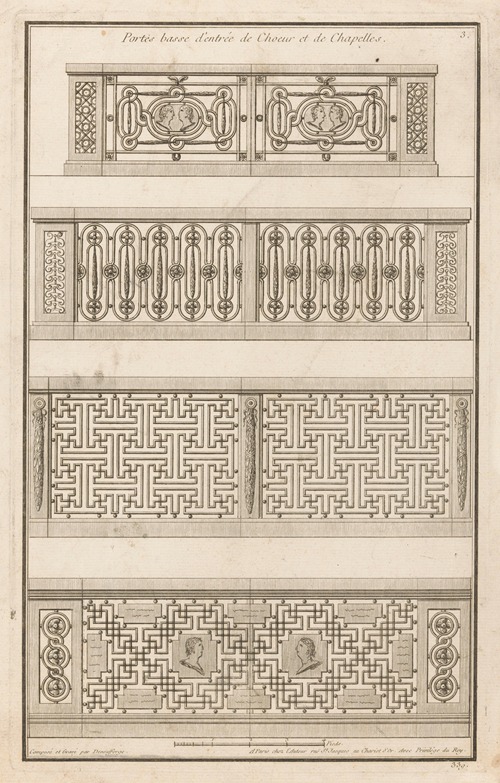 Portes basse d'entrée de Choeur et de Chapelles.
3.
Pieds
Composé et Gravé par Deneufforge.
A Paris chez l'Auteur rue St Jacques au Chariot d'Or. Avec Privilège du Roy.
339.